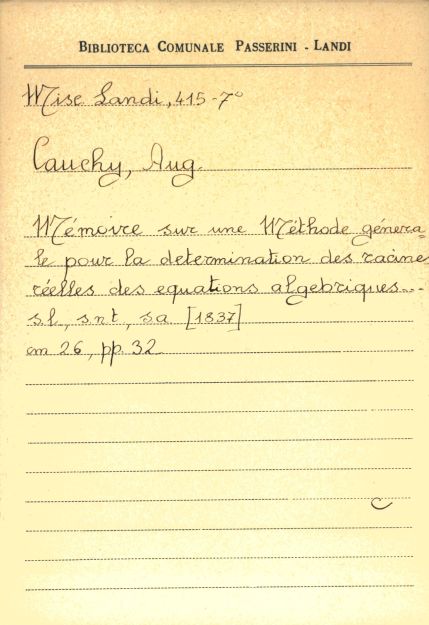 BIBLIOTECA COMUNALE PASSERINI - LANDI
Misc Landi, 415-7°
Cauchy, Aug.
Mémoire sur une Méthode généra-
le pour la determination des racines
réelles des equations algebriques...
s.l., s.n.t., s.a [1837]
cm 26, pp. 32